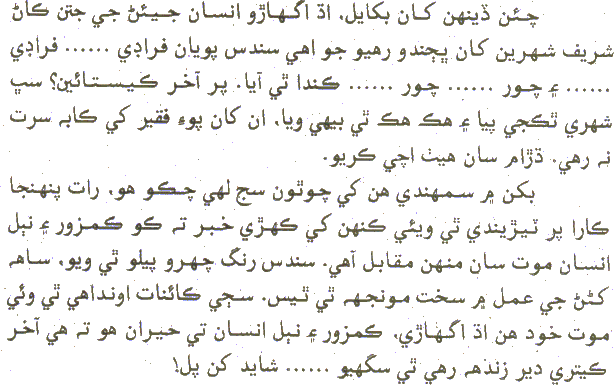 چئن ڏينهن کان بکايل، اڌ اگهاڙو انسان جيئڻ جي جتن ڪاڻ
شريف شهرين کان ڀڄندو رهيو جو اهي سندس پويان فراڊي ...... فراڊي
...... ۽ چور ...... چور ...... ڪندا ٿي آيا. پر آخر ڪيستائين؟ سڀ
شهري ٿڪجي پيا ۽ هڪ هڪ ٿي بيهي ويا. ان کان پوءِ فقير کي ڪابہ سرت
نہ رهي. ڌڙام سان هيٺ اچي ڪريو.
بکن ۾ سمهندي هن کي چوٿون سج لهي چڪو هو، رات پنهنجا
ڪارا پر ٽيڙيندي ٿي ويئي ڪنهن کي ڪهڙي خبر تہ ڪو ڪمزور ۽ نٻل
انسان موت سان منهن مقابل آهي. سندس رنگ چهرو پيلو ٿي ويو، ساهہ
کڻڻ جي عمل ۾ سخت مونجهہ ٿي ٿيس. سڄي ڪائنات اونداهي ٿي وئي
موت خود هن اڌ اگهاڙي، ڪمزور ۽ نٻل انسان تي حيران هو تہ هي آخر
ڪيتري دير زندهہ رهي ٿي سگهيو ...... شايد ڪن پل!